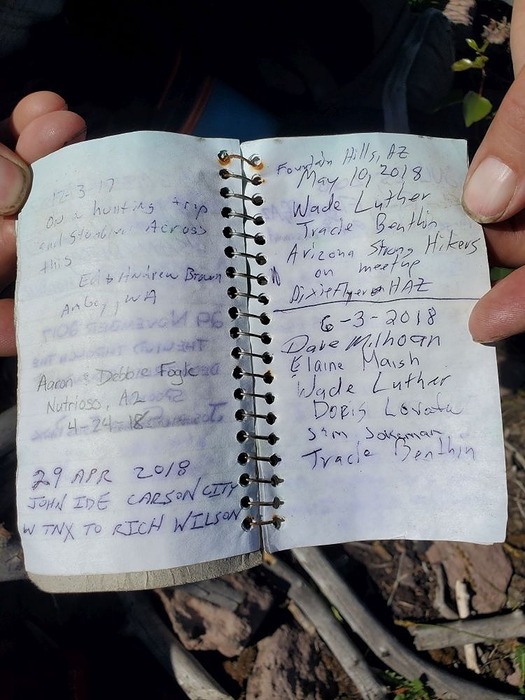 -3-17
On a hunting trip
and stumble Across
this
Ed & Andrew Brown
WA
Aaron & Debbie Fogle
Nutrioso, AZ
4-24-18
29 APR 2018
JOHN IDE CARSON CITY
W TNX TO RICH WILSON
Fountain Hills, AZ
May 19, 2018
Wade Luther
Tracie Benthin
Arizona Strong Hikers
on meetup
6-3-2018
Dave Milhoan
Elaine Marsh
Wade Luther
Doris
Tracie Benthin